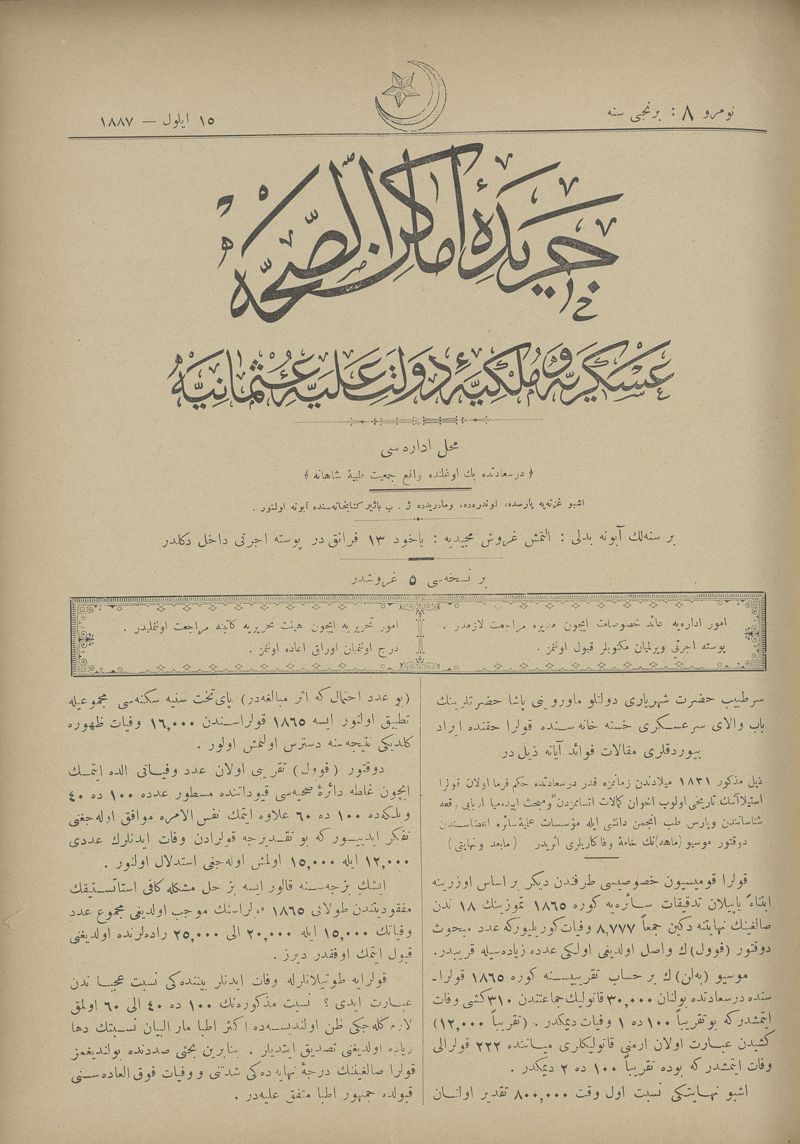 نومرو ٨ : برنجی سنه
١٥ ایلول — ١٨٨٧
جریدهٔ اماکن الصحّه
عسكريه و ملكيهٔ دولت عليهٔ عثمانيه
محل اداره سی
﴿ درسعادتده بك اوغلنده واقع جمعیت طبیهٔ شاهانه ﴾
اشبو غزته‌یه پارسده، لوندره‌ده، ومادریدده ژ . ب بائیر كتابخانه‌سنده آبونه اولنور .
بر سنه‌لك آبونه بدلی : التمش غروش مجیدیه : یاخود ١٣ فرانق در پوسته اجرتی داخل دكلدر
بر نسخه‌سی ٥ غروشدر
امور اداره‌یه عائد خصوصات ایچون مدیره مراجعت لازمدر .
پوسته اجرتی ویرلمیان مكتوبلر قبول اولنمز .
امور تحریریه ایچون هیئت تحریریه كاتبنه مراجعت اولنملیدر .
درج اولنمیان اوراق اعاده اولنمز .
سرطبیب حضرت شهریاری دولتلو ماوروینی پاشا حضرتلرینك
باب والای سرعسكری خسته خانه سنده قولرا حقنده ایراد
بیوردقلری مقالات فوائد آیاته ذیل در
ذیل مذكور ١٨٣١ میلادندن زمانمزه قدر درسعادتده حكم فرما اولان قولرا
استیلاآتنك تاریخی اولوب اخوان كمالات اتسامزدن ومبحث اپیده‌میا اربابی رقعه
شناساندن وپارس طب انجمن دانشی ایله مؤسسات علمیهٔ سائره اعضاسندن
دوقتور موسیو (ماهه)نك خامهٔ وفاكاریلری اثریدر ( مابعد ونهایتی )
قولرا قومیسیون خصوصیسی طرفندن دیكر بر اساس اوزرینه
ابتناءً یاپیلان تدقیقات سائره‌یه كوره ١٨٦٥ تموزینك ١٨ ندن
صالغینك نهایتنه دكین جمعاً ٨,٧٧٧ وفیات كوریلیوركه عدد مبحوث
دوقتور (فوول)ك واصل اولدیغی اولكی عدده زیاده‌سیله قریبدر.
موسیو (به‌لن)ك بر حساب تقریبیسنه كوره ١٨٦٥ قولرا-
سنده درسعادتده بولنان ٣٠,٠٠٠ قاتولیك جماعتندن ٣١٠ كشی وفات
ایتمشدركه بو تقریباً ١٠٠ ده ١ وفیات دیمكدر . (تقریباً ١٢,٠٠٠)
كشیدن عبارت اولان ارمنی قاتولیكلری میاننده ٢٢٢ قولرالی
وفات ایتمشدركه بوده تقریباً ١٠٠ ده ٢ دیمكدر .
اشبو نهایتكی نسبت اول وقت ٨٠٠,٠٠٠ تقدیر اولنان
(بو عدد احتمال كه اثر مبالغه‌در) پای تخت سنیه سكنه‌سی مجموعیله
تطبیق اولنور ایسه ١٨٦٥ قولراسندن ١٦,٠٠٠ وفیات ظهوره
كلدیكی نتیجه‌سنه دسترس اولنمش اولور .
دوقتور (فوول) تقریبی اولان عدد وفیاتی الده ایتمك
ایچون غلطه دائرهٔ صحیه‌سی قیوداتنده مسطور عدده ١٠٠ ده ٤٠
وبلكه‌ده ١٠٠ ده ٦٠ علاوه ایتمك نفس الامره موافق اوله‌جغنی
تفكر ایدییوركه بو تقدیرجه قولرادن وفات ایدنلرك عددی
١٢,٠٠٠ ایله ١٥,٠٠٠ اولمش اوله‌جغی استدلال اولنور .
ایشك بزجه‌سنه قالور ایسه بز حل مشكله كافی استاتستیقك
مفقودیتندن طولایی ١٨٦٥ قولراسنك موجب اولدیغی مجموع عدد
وفیاتك ١٥,٠٠٠ ایله ٢٠,٠٠٠ الی ٢٥,٠٠٠ راده‌لرنده اولدیغنی
قبول ایتمك اوفقدر دیرز .
قولرایه طوتیلانلرله وفات ایدنلر بیننده‌كی نسبت عجبا ندن
عبارت ایدی ؟ نسبت مذكوره‌نك ١٠٠ ده ٤٠ الی ٦٠ اولمق
لازم كله‌جكی ظن اولندیسه‌ده اكثر اطبا مار البیان نسبتك دها
زیاده اولدیغنی تصدیق ایتدیلر . بنابرین بحثی صددنده بولندیغمز
قولرا صالغینك درجهٔ نهایه‌ده‌كی شدتنی و وفیات فوق العاده‌سنی
قبولده جمهور اطبا متفق علیه‌در .